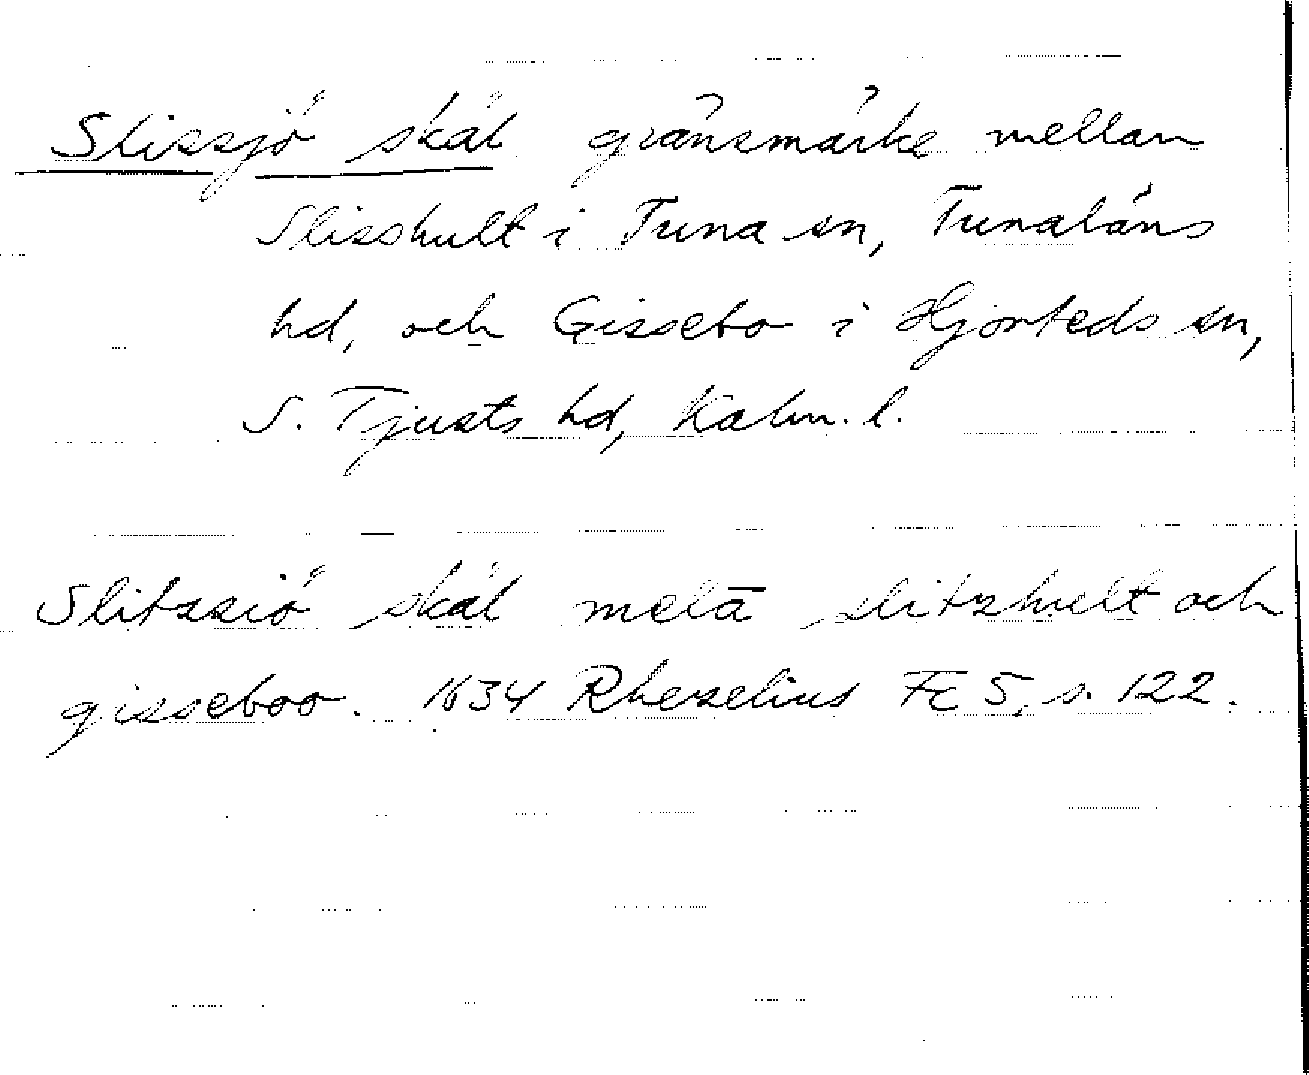 Slissjö skäl gränsmärke mellan
Slisshult i Tuna sn, Tunaläns
hd, och Gissebo i Hjorteds sn,
S. Tjusts hd, Kalm. l.
Slitzsiö skäl melā slitzhult och
gisseboo. 1634 Rhezelius Fc 5, s. 122.